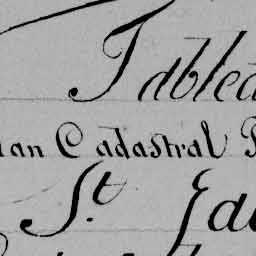 Tablea
lan Cadastral P
St. Ja